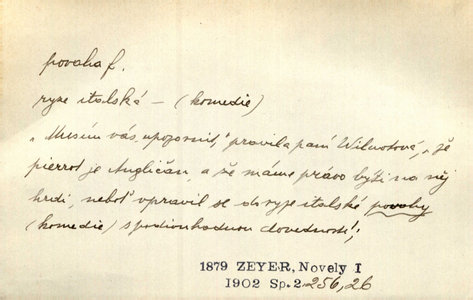 povaha f.
ryze italská – (komedie)
„Musím vás upozornit," pravila paní Wilmotová, „že
pierrot je Angličan, a že máme právo býti na něj
hrdi, neboť vpravil se do ryze italské povahy
(komedie) s podivuhodnou dovedností;
1879 ZEYER, Novely I
1902 Sp. 2 256,26